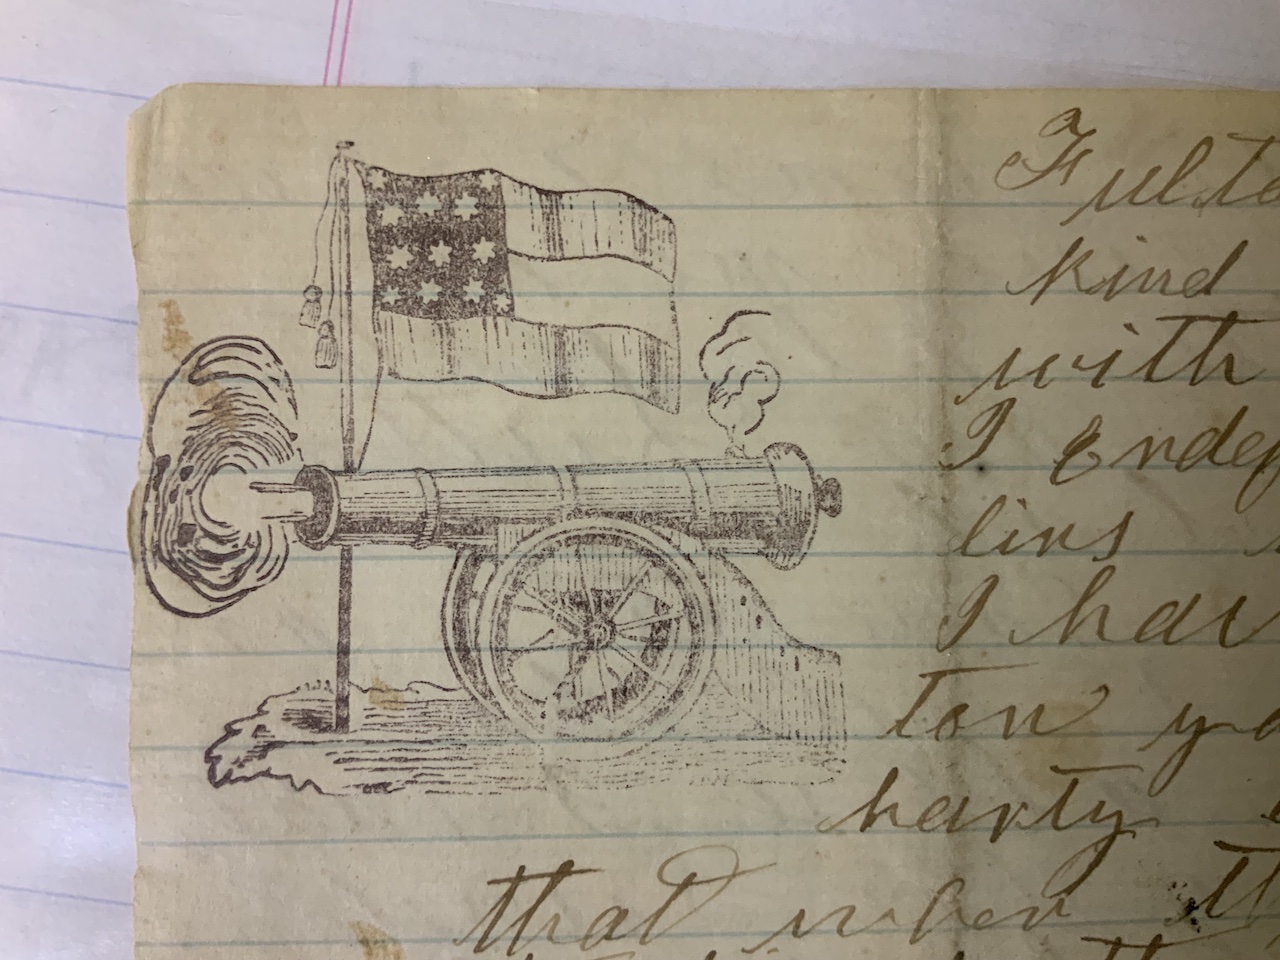 Fulto
kind
with
I endep
lins
I hav
ton yo
harty
that when th